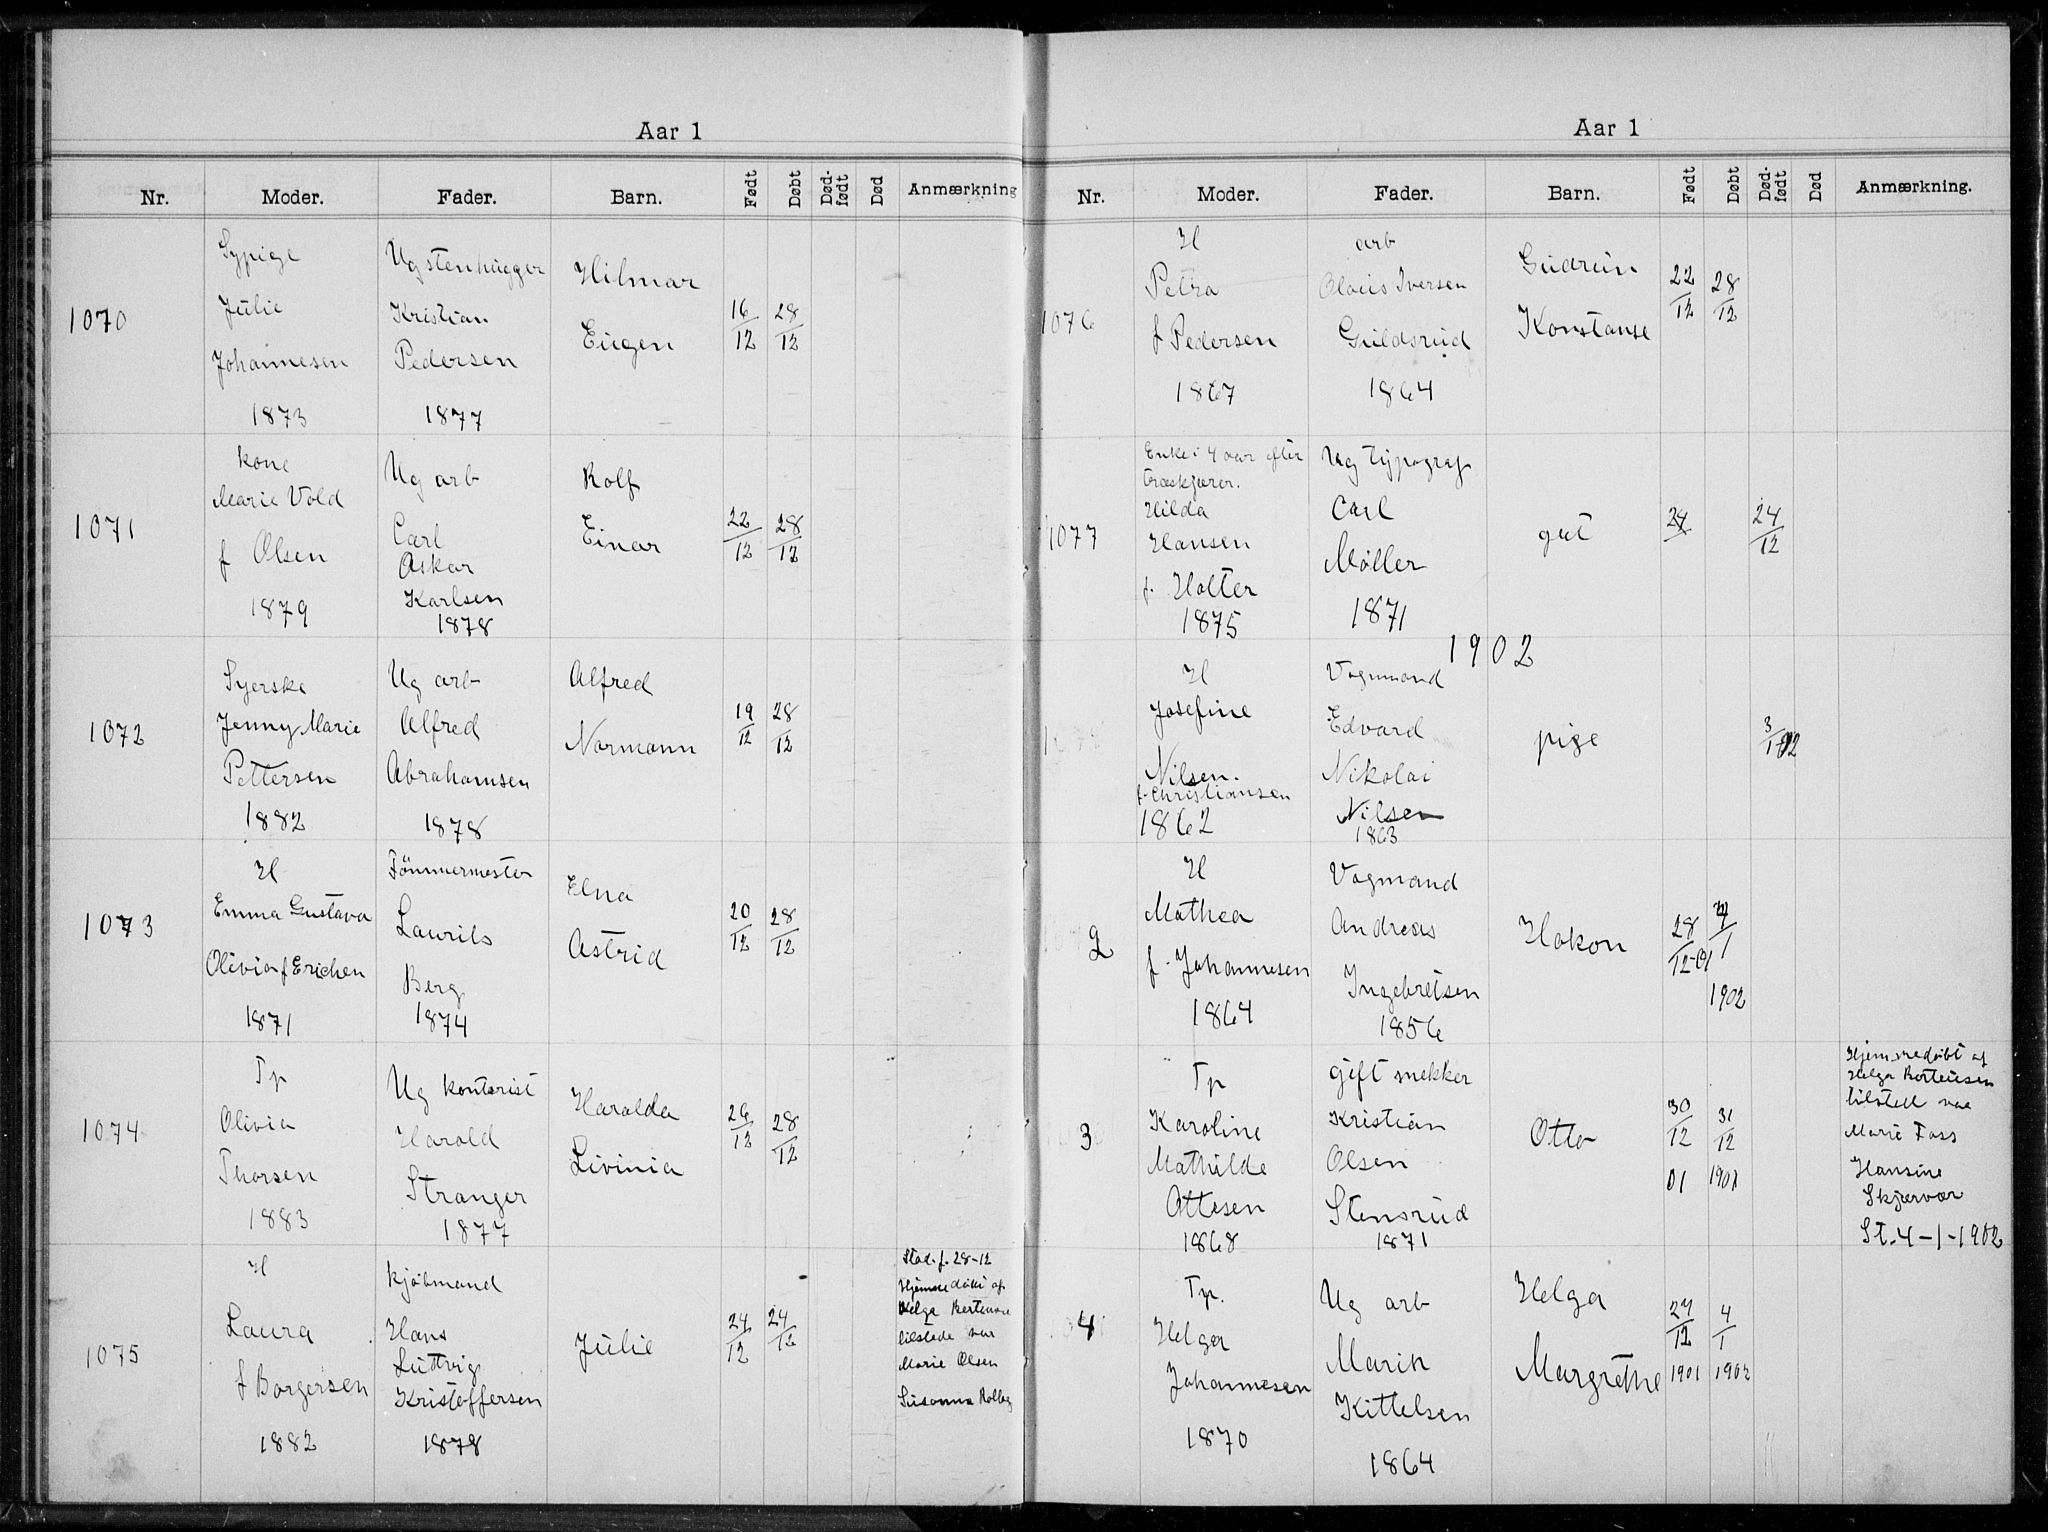 Aar 1
Nr. Moder. Fader. Barn. Født Døbt Død-født Død Anmærkning
1070
Sypige
Julie
Johannesen
1873
Ug stenhugger
Kristian
Pedersen
1877
Hilmar
Eugen
16/12 28/12
1071
kone
Marie Vold
f Olsen
1879
Ug arb
Carl
Oskar
Karlsen
1878
Rolf
Einar
22/12 28/12
1072
Syerske
Jenny Marie
Pettersen
1882
Ug arb
Alfred
Abrahamsen
1878
Alfred
Normann
19/12 28/12
1073
H
Emma Gustava
Olivia f Erichen
1871
Tömmermester
Laurits
Berg
1874
Elna
Astrid
20/12 28/12
1074
Tp
Olivia
Thorsen
1883
Ug kontorist
Harold
Stranger
1877
Haralda
Livinia
26/12 28/12
1075
H
Laura
f Borgersen
1882
kjøbmand
Hans
Ludvig
Kristoffersen
1878
Julie
24/12 24/12
Stad. f. 28-12
Hjemmedöbt af
Helga Bertensen
tilstede var
Marie Olsen
Susanna
Aar 1
Nr. Moder. Fader. Barn. Født Døbt Død-født Død Anmærkning.
1076
H
Petra
f Pedersen
1867
arb
Olaus Iversen
Guldsrud
1864
Gudrun
Konstanse
22/12 28/12
1077
Enke i 4 aar efter
træskjærer.
Hilda
Hansen
f. Holter
1875
Ug typograf
Carl
Møller
1871
gut
24/ 24/12
1902
H
Josefine
Nilsen.
f. Christiansen
1862
Vognmand
Edvard
Nikolai
Nilsen
1863
pige
3/1 02
2
H
Mathea
f. Johannesen
1864
Vogmand
Andreas
Ingebretsen
1856
Hakon
28/12-01
/1
1902
3
Tp
Karoline
Mathilde
Ottesen
1868
gift snekker
Kristian
Olsen
Stensrud
1871
Otto
30/12 31/12
01 1901
Hjemmedöbt af
Helga Bertensen
tilsted var
Marie Foss
Hansine
Skjærvær
St. 4-1-1902
4
Tp.
Helga
Johannesen
1870
Ug arb
Marin
Kittelsen
1864
Helga
Margrethe
27/12 4/1
1901 1902